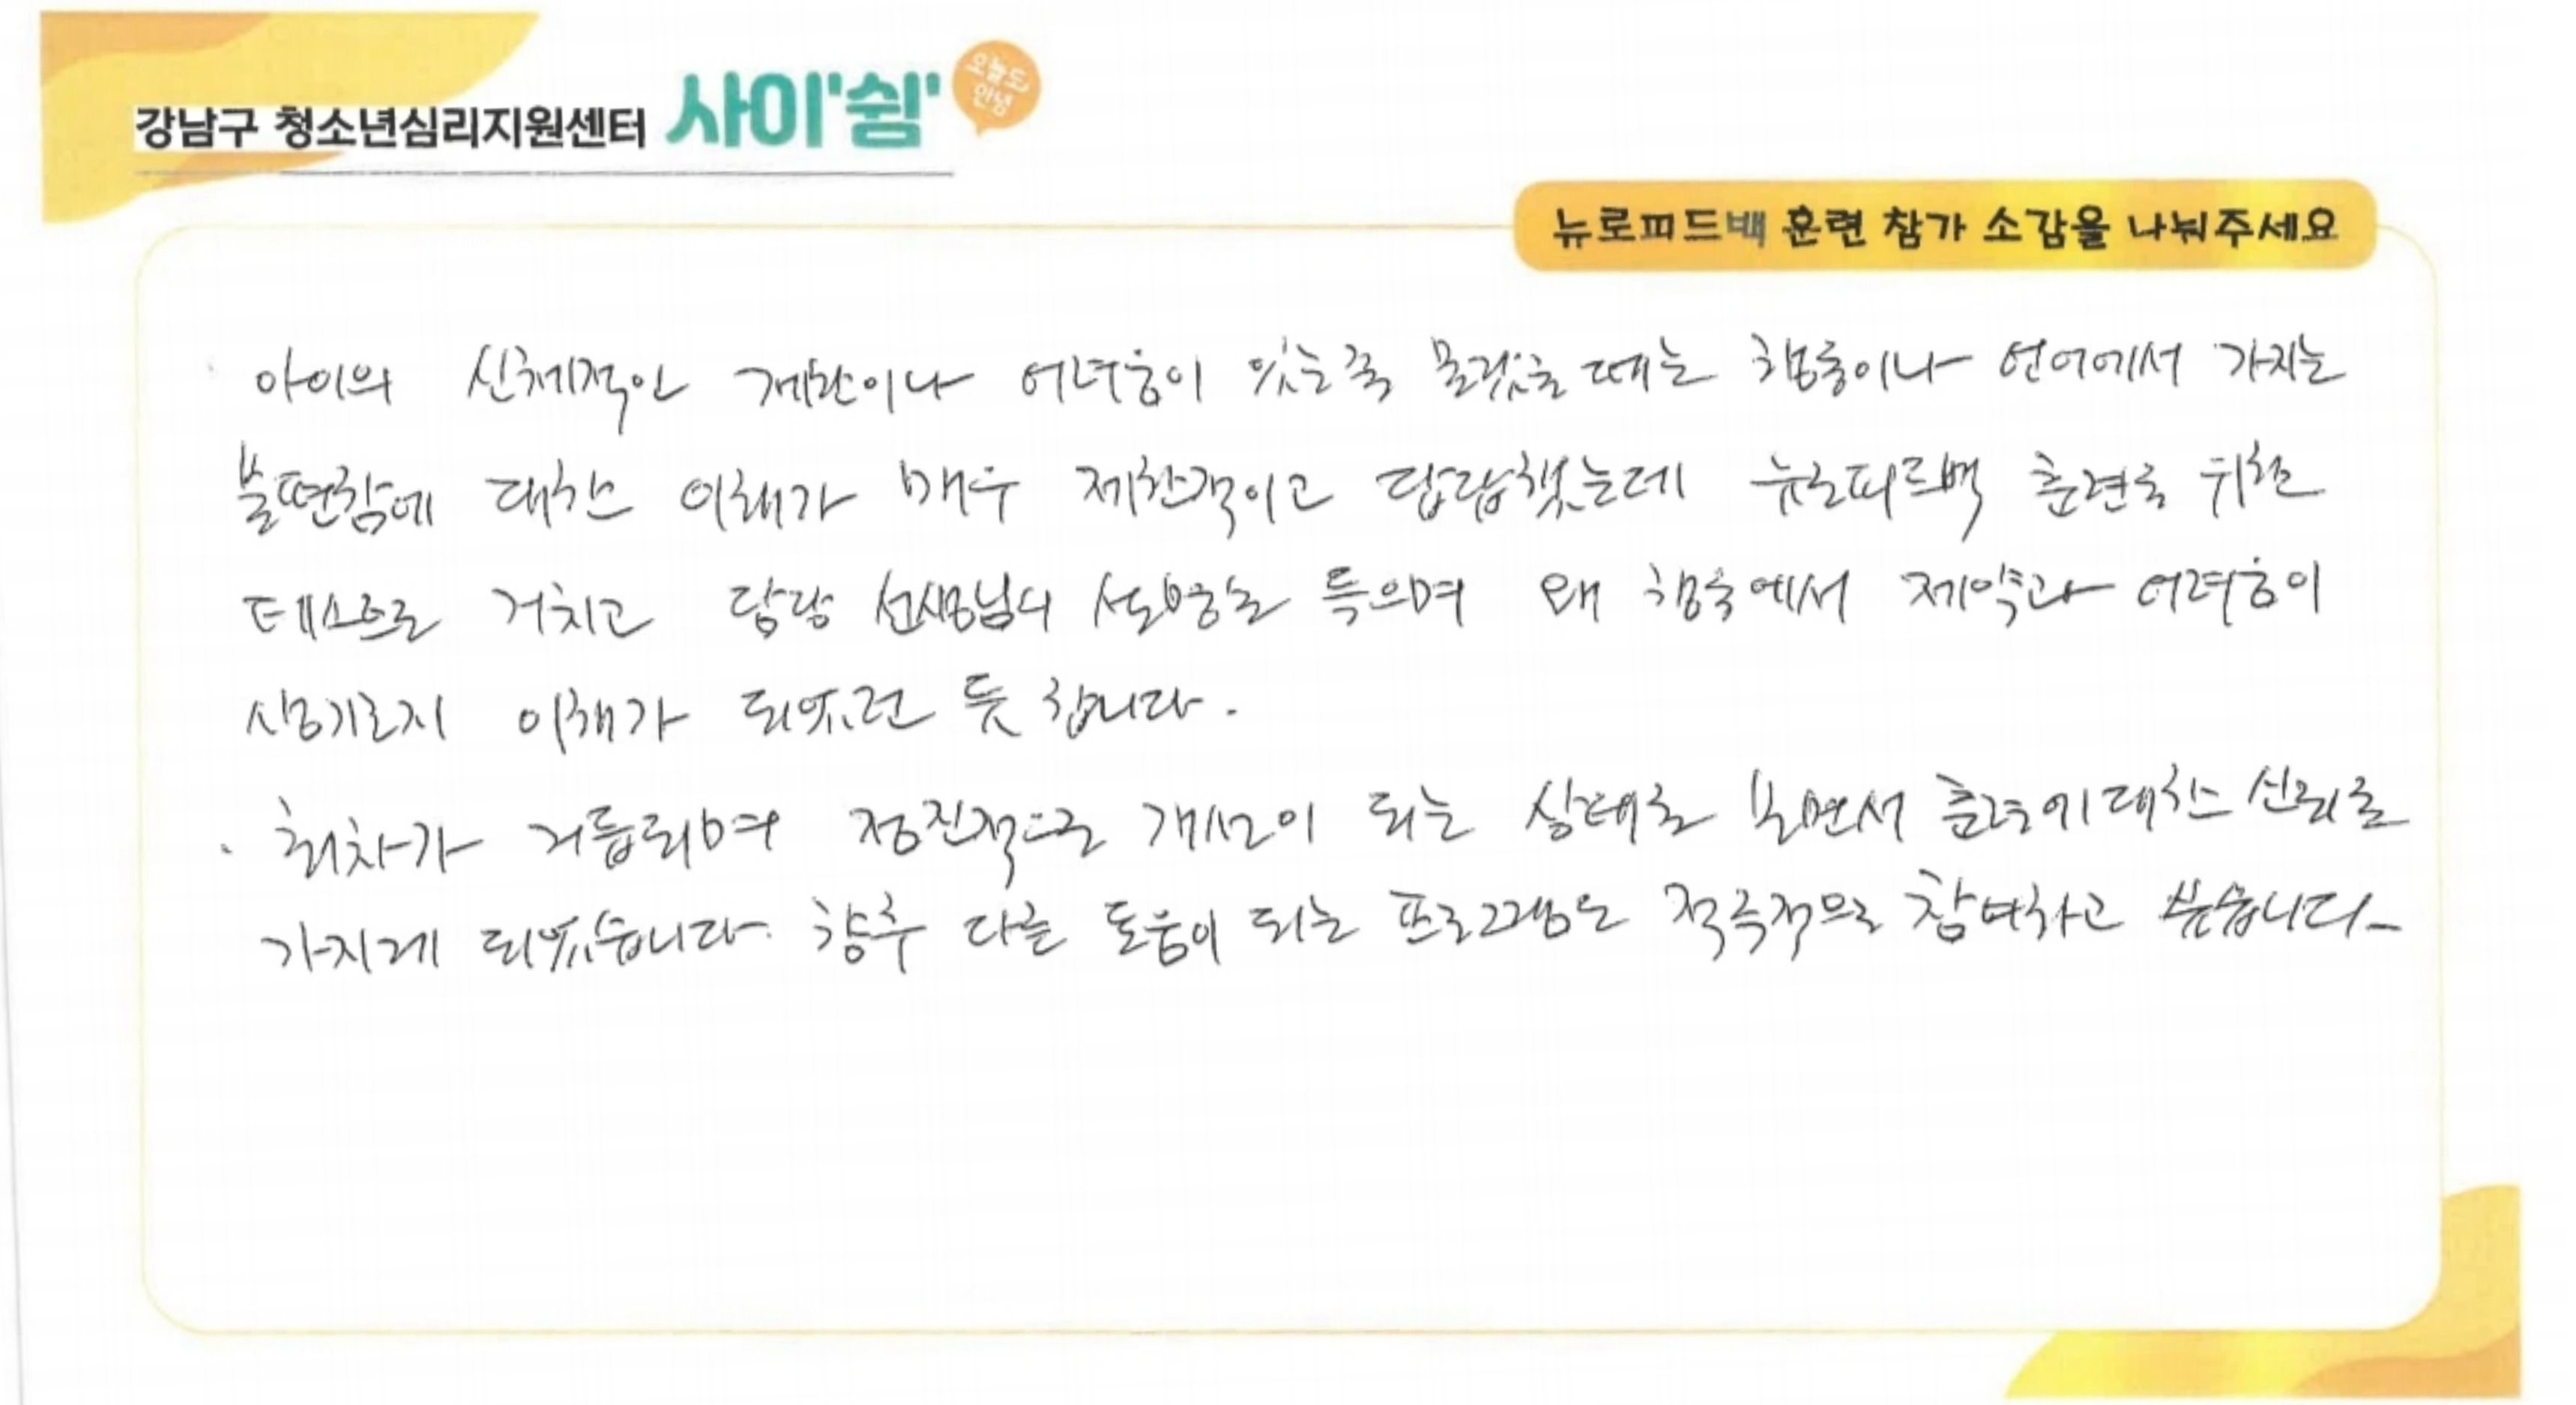 강남구 청소년심리지원센터 사이'쉼'
오늘도, 안녕
뉴로피드백 훈련 참가 소감을 나눠주세요
아이의 신체적인 제한이나 어려움이 있는줄 몰랐을 때는 행동이나 언어에서 가지는
불편함에 대한 이해가 매우 제한적이고 답답했는데 뉴로피드백 훈련을 위한
테스트를 거치고 담당 선생님의 설명을 들으며 왜 행동에서 제약과 어려움이
생기는지 이해가 되었던 듯 합니다.
· 회차가 거듭되며 점진적으로 개선이 되는 상태를 보면서 훈련에 대한 신뢰를
가지게 되었습니다. 향후 다른 도움이 되는 프로그램도 적극적으로 참여하고 싶습니다.